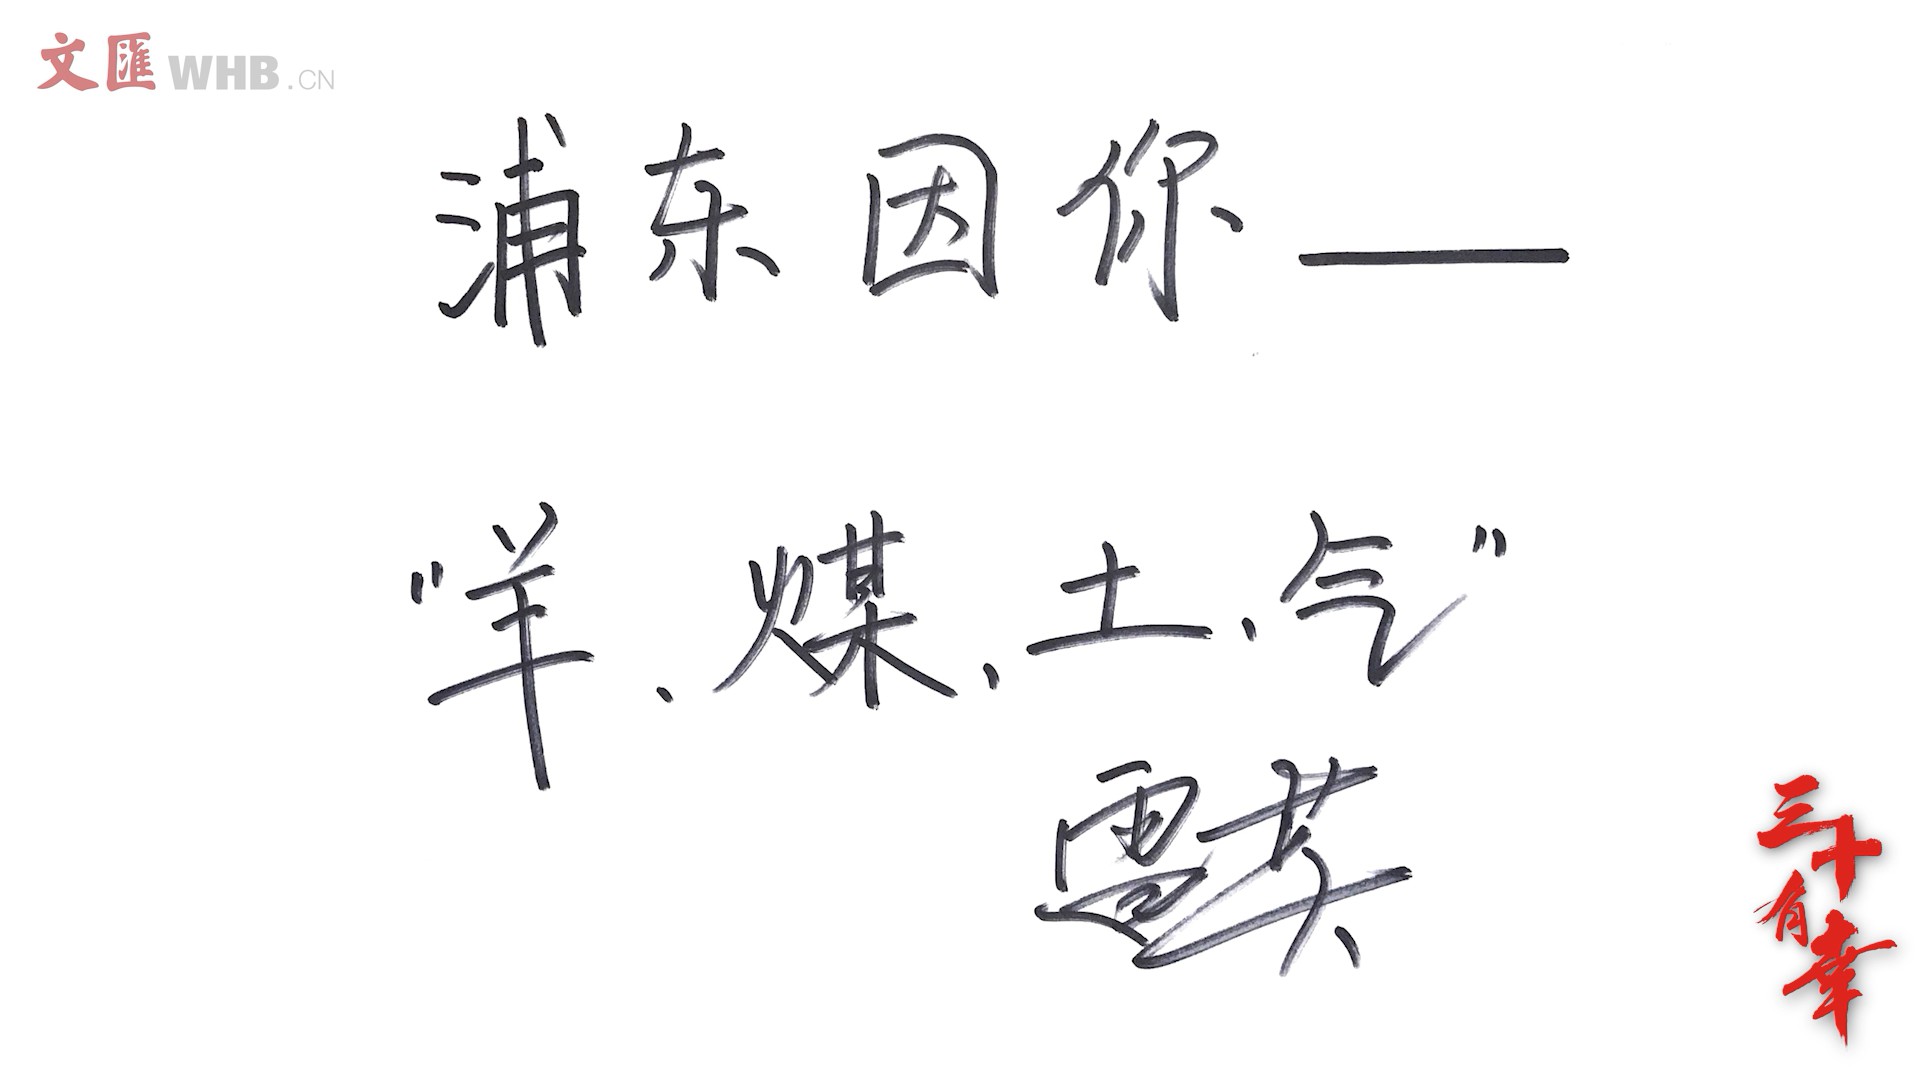 文匯 WHB.CN
浦东因你——
“羊、煤、土、气”
三十
有幸